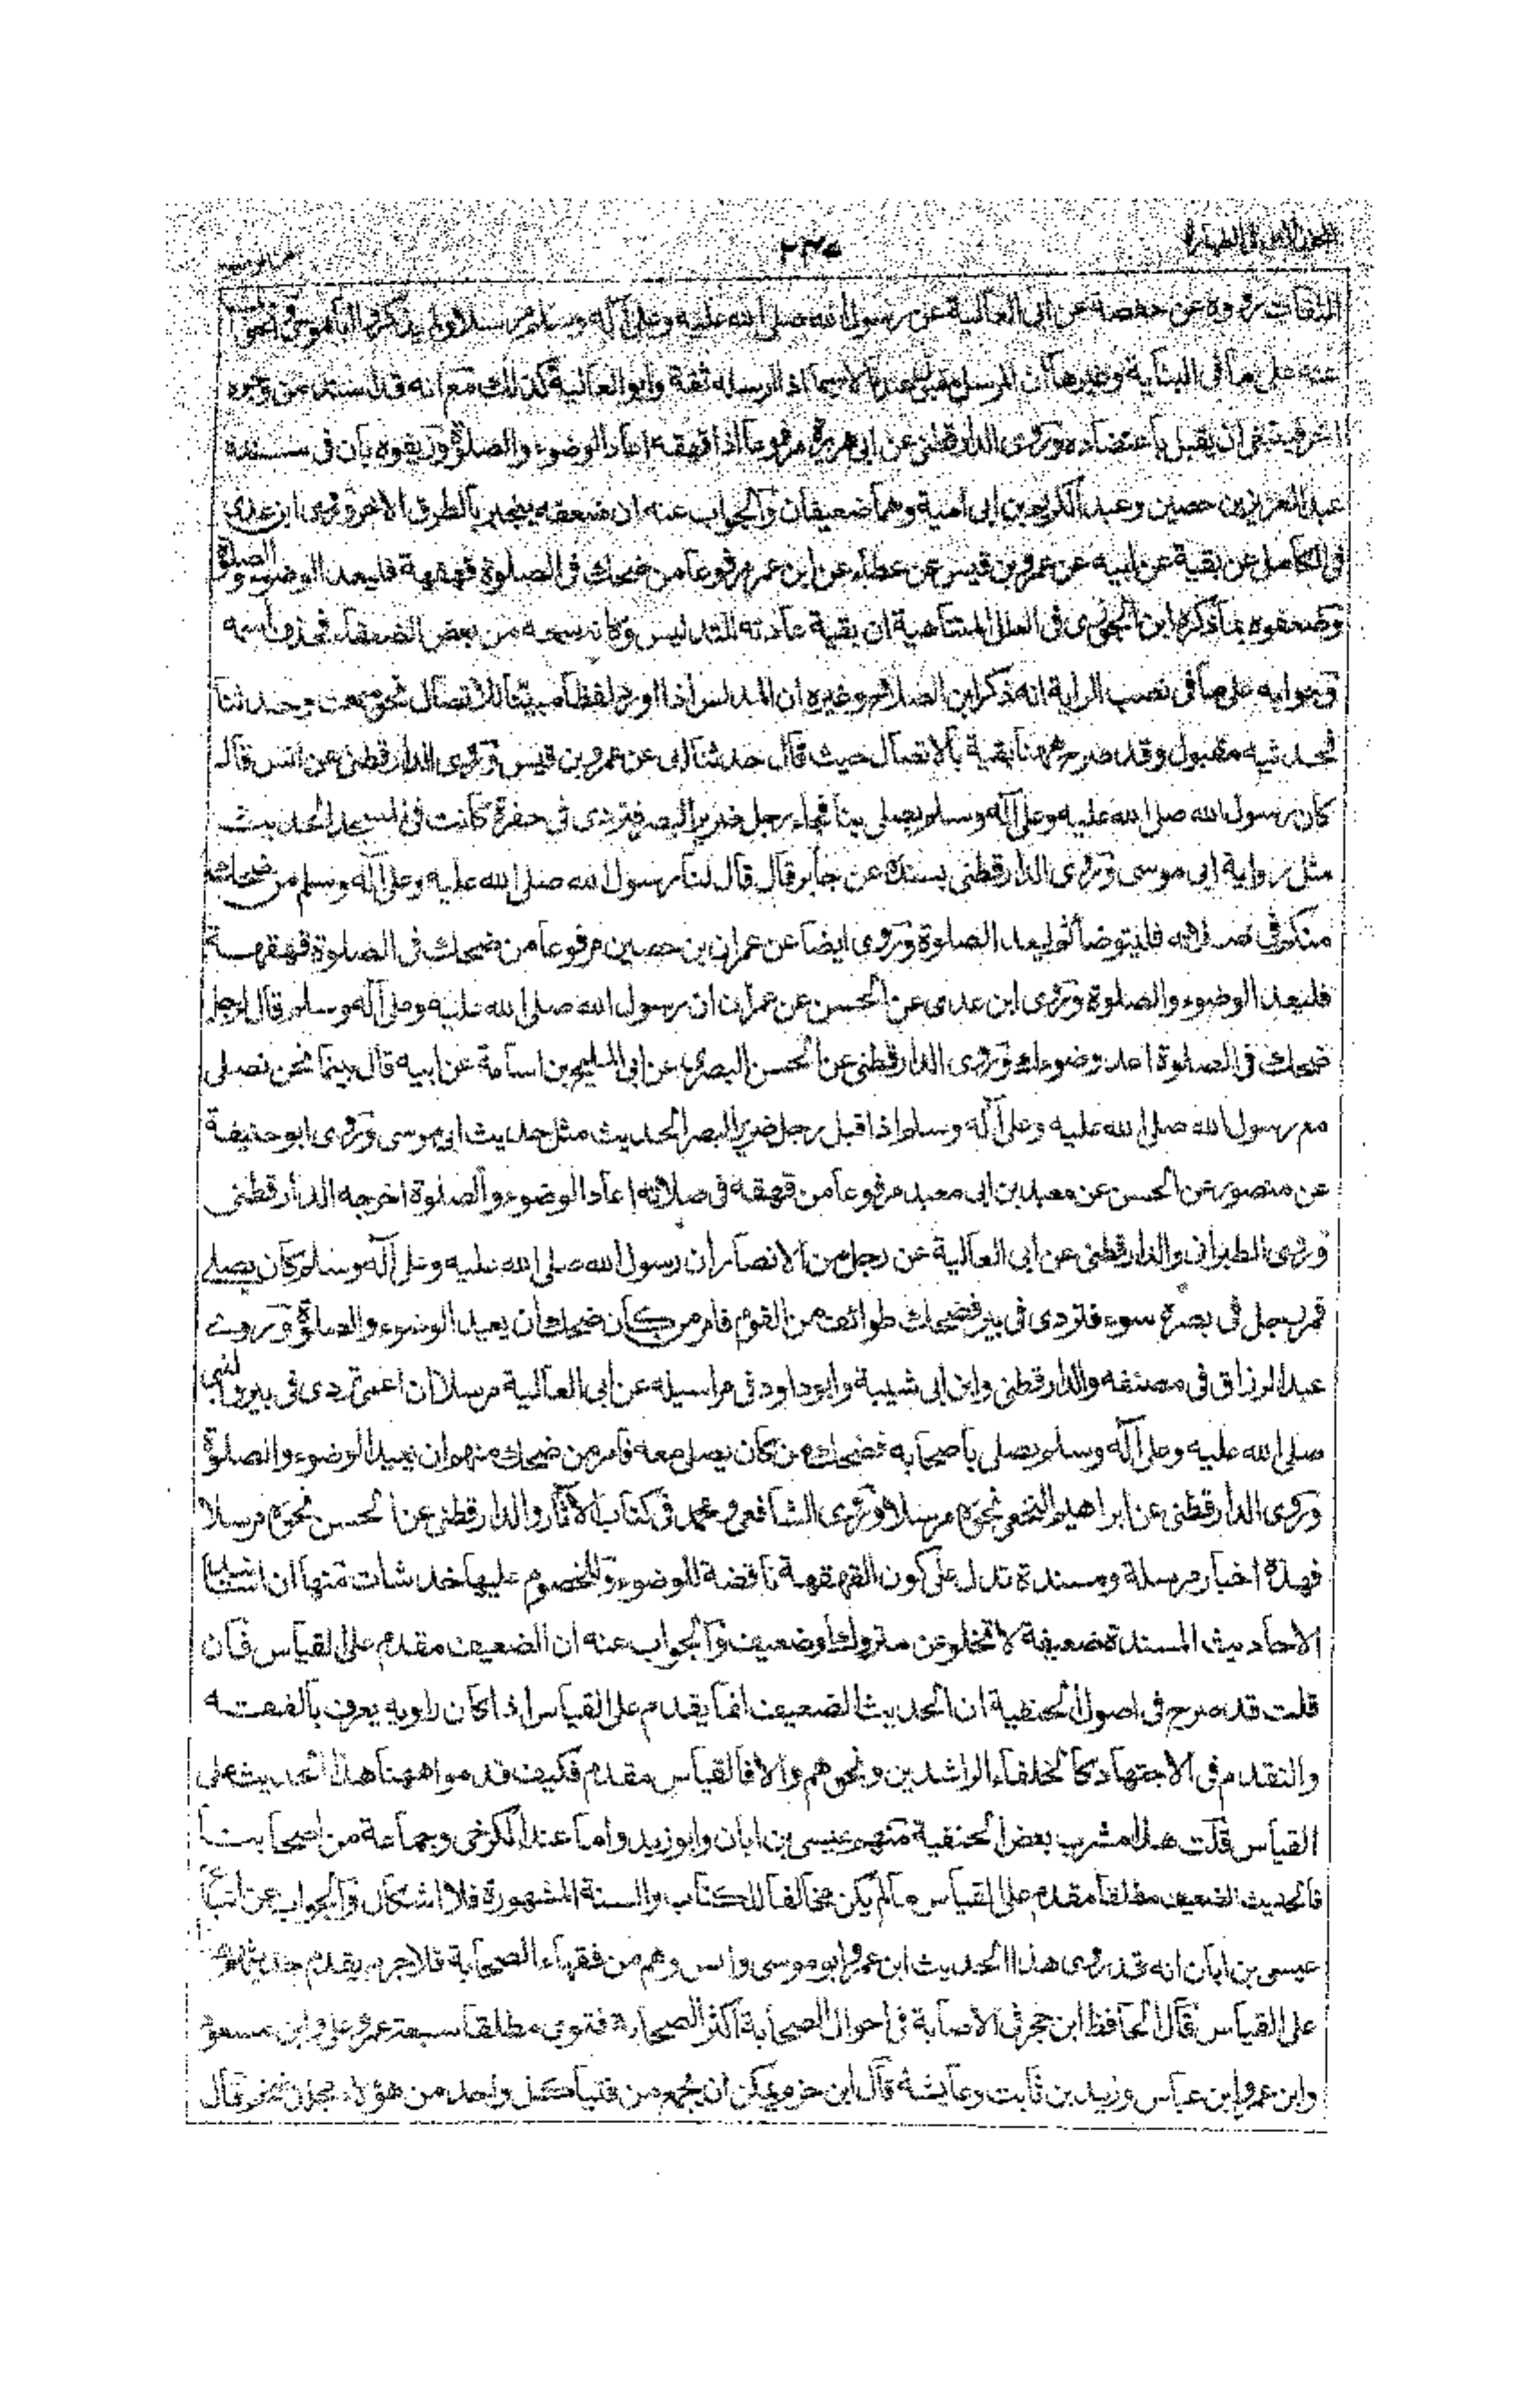 الثقات رووه عن حفصة عن ابى العالية عن رسول الله صلى الله عليه وعلى آله وسلم مرسلا ولم يذكروا ابا موسى والجواب
عنه على ما فى البناية وغيرها ان المرسل مقبول عندنا لاسيما اذا ارسله ثقة وابو العالية كذلك مع انه قد اسند من وجوه
اخر فينبغى ان يقبل باعتضاده وروى الدارقطنى عن ابى هريرة مرفوعا اذا قهقه اعاد الوضوء والصلوة وزيفوه بان فى سنده
عبد العزيز بن حصين وعبد الكريم بن ابى امية وهما ضعيفان والجواب عنه ان ضعفه ينجبر بالطرق الاخر وروى ابن عدى
فى الكامل عن بقية عن ابيه عن عمرو بن قيس عن عطاء عن ابن عمر مرفوعا من ضحك فى الصلوة قهقهة فليعد الوضوء والصلوة
وضعفوه بما ذكره ابن الجوزى فى العلل المتناهية ان بقية عادته التدليس وكانه سمعه من بعض الضعفاء فحذف اسمه
وجوابه على ما فى نصب الراية انه ذكر ابن الصلاح وغيره ان المدلس اذا اورد لفظا مبينا للاتصال نحو سمعت وحدثنا
فحديثه مقبول وقد صرح ههنا بقية بالاتصال حيث قال حدثنا ابى عن عمرو بن قيس وروى الدارقطنى عن انس قال
كان رسول الله صلى الله عليه وعلى آله وسلم يصلى بنا فجاء رجل ضرير البصر فتردى فى حفرة كانت فى المسجد الحديث
مثل رواية ابى موسى وروى الدارقطنى بسنده عن جابر قال قال لنا رسول الله صلى الله عليه وعلى آله وسلم من ضحك
منكم فى صلاته فليتوضأ ثم ليعد الصلوة وروى ايضا عن عمران بن حصين مرفوعا من ضحك فى الصلوة قهقهة
فليعد الوضوء والصلوة وروى ابن عدى عن الحسن عن عمران ان رسول الله صلى الله عليه وعلى آله وسلم قال لرجل
ضحك فى الصلوة اعد وضوءك وروى الدارقطنى عن الحسن البصرى عن ابى المليح بن اسامة عن ابيه قال بينما نحن نصلى
مع رسول الله صلى الله عليه وعلى آله وسلم اذا قبل رجل ضرير البصر الحديث مثل حديث ابى موسى وروى ابو حنيفة
عن منصور عن الحسن عن معبد بن ابى معبد مرفوعا من قهقه فى صلاته اعاد الوضوء والصلوة اخرجه الدارقطنى
وروى الطبرانى والدارقطنى عن ابى العالية عن رجل من الانصار ان رسول الله صلى الله عليه وعلى آله وسلم كان يصلى
فمر رجل فى بصره سوء فتردى فى بير فضحك طوائف من القوم فامر من كان ضحك ان يعيد الوضوء والصلوة وروى
عبد الرزاق فى مصنفه والدارقطنى وابن ابى شيبة وابو داود فى مراسيله عن ابى العالية مرسلا ان اعمى تردى فى بير والنبى
صلى الله عليه وعلى آله وسلم يصلى باصحابه فضحك من كان يصلى معه فامر من ضحك منهم ان يعيد الوضوء والصلوة
وروى الدارقطنى عن ابراهيم النخعى نحوه مرسلا وروى الشافعى ومحمد فى كتاب الآثار والدارقطنى عن الحسن نحوه مرسلا
فهذه اخبار مرسلة ومسندة تدل على كون القهقهة ناقضة للوضوء وللخصوم عليها خدشات منها ان اسانيد
الاحاديث المسندة ضعيفة لا تخلو عن متروك او ضعيف والجواب عنه ان الضعيف مقدم على القياس فان
قلت قد صرح فى اصول الحنفية ان الحديث الضعيف انما يقدم على القياس اذا كان راويه يعرف بالفقه
والتقدم فى الاجتهاد كالخلفاء الراشدين ونحوهم والا فالقياس مقدم فكيف قدموا ههنا هذا الحديث على
القياس قلت هذا مشرب بعض الحنفية منهم عيسى بن ابان وابو زيد واما عند الكرخى وجماعة من اصحابنا
فالحديث الضعيف مطلقا مقدم على القياس ما لم يكن مخالفا للكتاب والسنة المشهورة فلا اشكال والجواب عن اتباع
عيسى بن ابان انه قد روى هذا الحديث ابن عمر وابو موسى وانس وهم من فقهاء الصحابة فلا جرم يقدم حديثهم
على القياس قال الحافظ ابن حجر فى الاصابة فى احوال الصحابة اكثر الصحابة فتوى مطلقا سبعة عمر وعلى وابن مسعود
وابن عمر وابن عباس وزيد بن ثابت وعايشة قال ابن حزم يمكن ان يجمع من فتيا كل واحد من هؤلاء مجلد ضخم قال